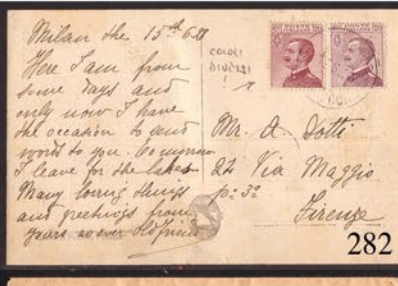 Milan the 15th 6.28
Here I am from
some days and
only now I have
the occasion to send
word to you. Tomorrow
I leave for the lakes
Many loving things
and greetings from
yours as ever Old friend
COLORI
DIVERSI
!
Mr. A. Dotti
22 Via Maggio
p.o 3o
Firenze
282